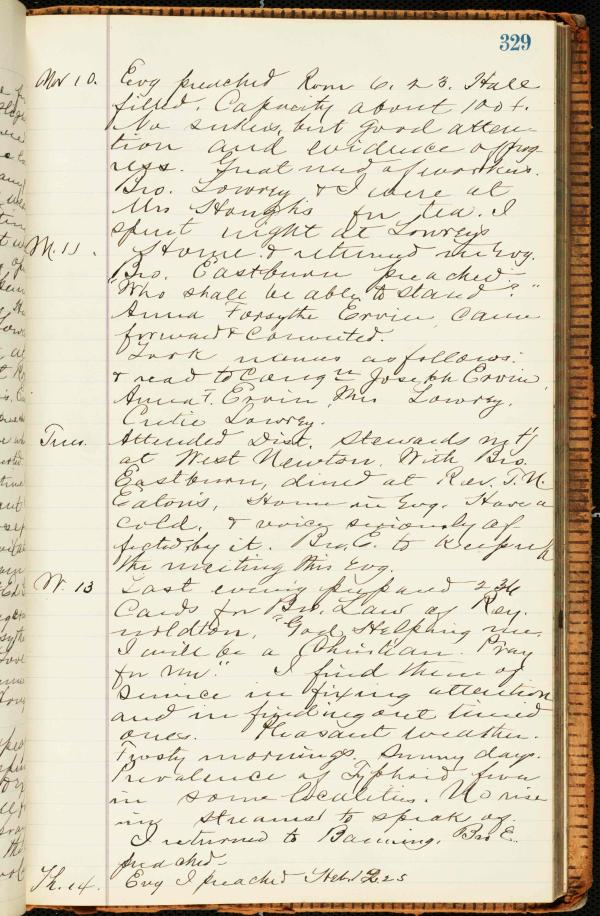 329
Nov 10. Evg preached Rom 6. 23. Hall
filled. Capacity about 100+.
No seekers, but good atten-
tion and evidence of prog
ress. Great need of workers.
Bro. Lowrey & I were at
Mrs Hough's for tea. I
spent night at Lowreys
M. 11. Home & returned in Evg.
Bro. Eastburn preached
"Who shall be able to stand?"
Anna Forsythe Ervin came
forward & converted.
Took names as follows:
& read to Cong'n Joseph Ervin,
Anna F. Ervin, Mrs Lowrey,
Cutie Lowrey.
Tues. Attended Dist. Stewards mt'g
at West Newton. With Bro.
Eastburn, dined at Rev. T. N.
Eaton's, Home in Evg. Have a
cold, & voice seriously af
fected by it. Bro. E. to keep up
the meeting this Evg.
W. 13 Last evening prepared 236
Cards for Bro. Law of Rey-
noldton, "God Helping me,
I will be a Christian. Pray
for me." I find them of
service in fixing attention
and in finding out timid
ones. Pleasant weather.
Frosty mornings, sunny days.
Prevalence of Typhoid fever
in some localities. No rise
in streams to speak of.
I returned to Banning. Bro E.
preached.
Th. 14. Evg I preached Heb. 12 25